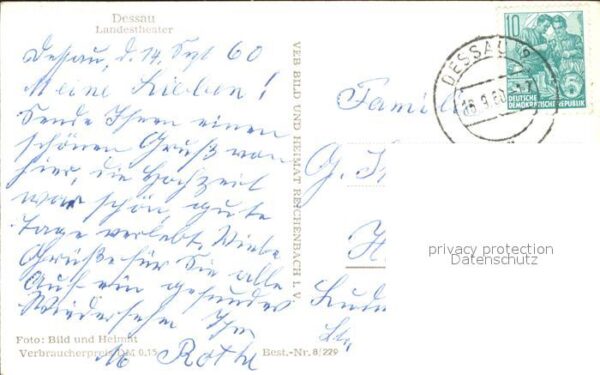 Dessau
Landestheater
Dessau, d. 14. Sept 60
Meine Lieben!
Sende Ihnen einen
schönen Gruß von
hier, die Hochzeit
war schön, gute
Tage verlebt. Viele
Grüße für Sie alle
Auf ein gesundes
Wiedersehn Ihr
M Rothe
Foto: Bild und Heimat
Verbraucherpreis DM 0.15
Best.-Nr. 8/229
VEB BILD UND HEIMAT REICHENBACH I. V.
10
DEUTSCHE
DEMOKRATISCHE REPUBLIK
DESSAU
16.9.60
Famil
G.
H
privacy protection
Datenschutz